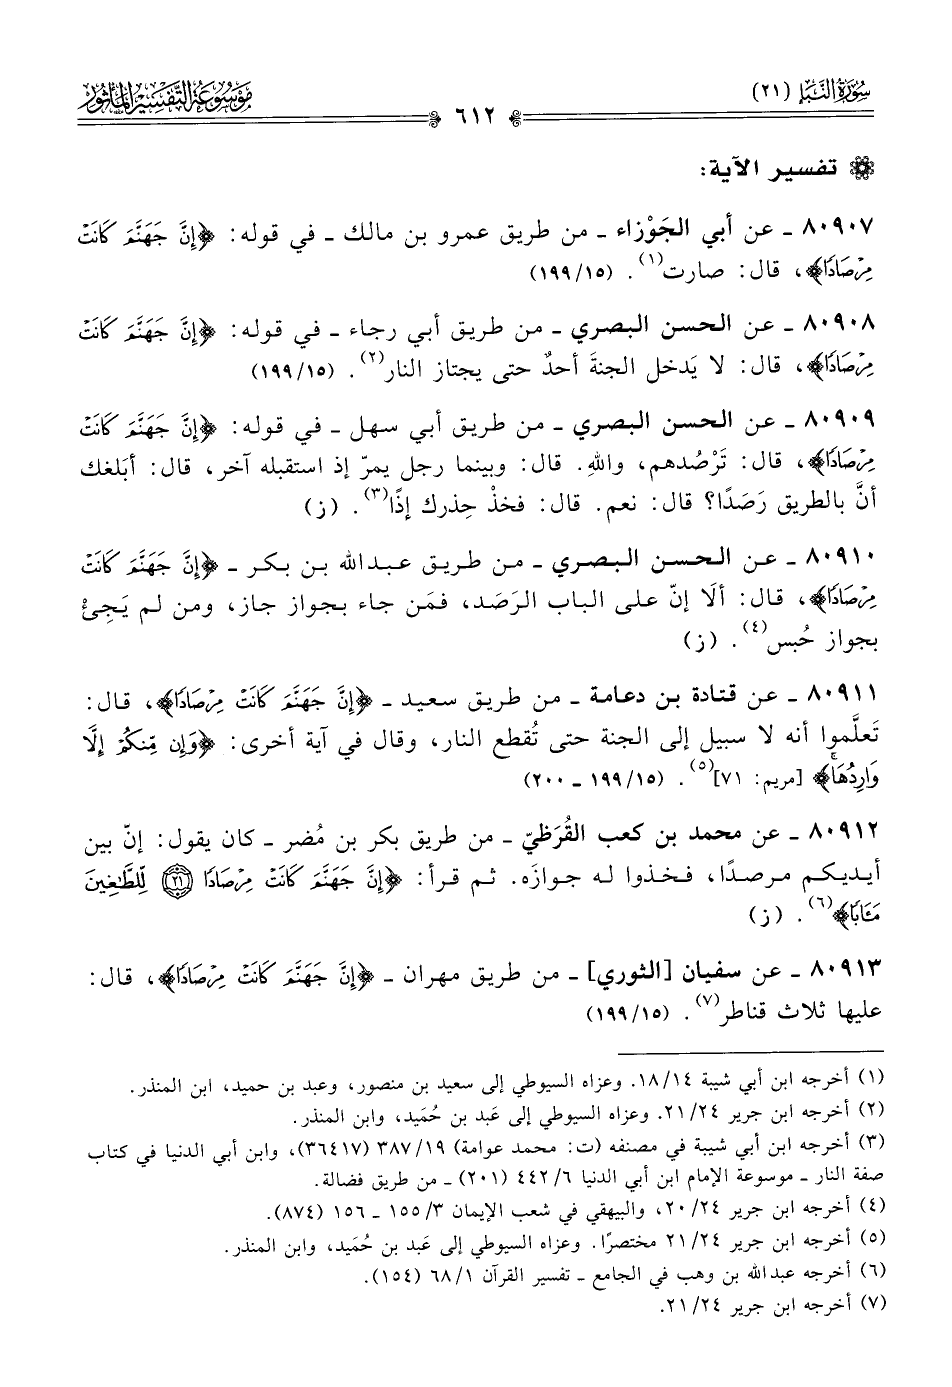 سُورَةُ النَّبَإِ (٢١)
مَوْسُوعَةُ التَّفْسِيرِ المَأْثُورِ
٦١٢
تفسير الآية:
٨٠٩٠٧ ـ عن أبي الجَوْزاء ـ من طريق عمرو بن مالك ـ في قوله: ﴿إِنَّ جَهَنَّمَ كَانَتْ
مِرْصَادًا﴾، قال: صارت(١). (١٩٩/١٥)
٨٠٩٠٨ ـ عن الحسن البصري ـ من طريق أبي رجاء ـ في قوله: ﴿إِنَّ جَهَنَّمَ كَانَتْ
مِرْصَادًا﴾، قال: لا يَدخل الجنةَ أحدٌ حتى يجتاز النار(٢). (١٩٩/١٥)
٨٠٩٠٩ ـ عن الحسن البصري ـ من طريق أبي سهل ـ في قوله: ﴿إِنَّ جَهَنَّمَ كَانَتْ
مِرْصَادًا﴾، قال: تَرْصُدهم، واللهِ. قال: وبينما رجل يمرّ إذ استقبله آخر، قال: أبَلغك
أنَّ بالطريق رَصَدًا؟ قال: نعم. قال: فخذْ حِذرك إذًا(٣). (ز)
٨٠٩١٠ ـ عن الحسن البصري ـ من طريق عبدالله بن بكر ـ ﴿إِنَّ جَهَنَّمَ كَانَتْ
مِرْصَادًا﴾، قال: ألَا إنّ على الباب الرَصَد، فمَن جاء بجواز جاز، ومن لم يَجِئْ
بجواز حُبس(٤). (ز)
٨٠٩١١ ـ عن قتادة بن دعامة ـ من طريق سعيد ـ ﴿إِنَّ جَهَنَّمَ كَانَتْ مِرْصَادًا﴾، قال:
تَعلَّموا أنه لا سبيل إلى الجنة حتى تُقطع النار، وقال في آية أخرى: ﴿وَإِن مِّنكُمْ إِلَّا
وَارِدُهَا﴾ [مريم: ٧١](٥). (١٩٩/١٥ ـ ٢٠٠)
٨٠٩١٢ ـ عن محمد بن كعب القُرَظيّ ـ من طريق بكر بن مُضر ـ كان يقول: إنّ بين
أيديكم مرصدًا، فخذوا له جوازَه. ثم قرأ: ﴿إِنَّ جَهَنَّمَ كَانَتْ مِرْصَادًا ۝٢١ لِّلطَّاغِينَ
مَـَٔابًا﴾(٦). (ز)
٨٠٩١٣ ـ عن سفيان [الثوري] ـ من طريق مهران ـ ﴿إِنَّ جَهَنَّمَ كَانَتْ مِرْصَادًا﴾، قال:
عليها ثلاث قناطر(٧). (١٩٩/١٥)
(١) أخرجه ابن أبي شيبة ١٨/١٤. وعزاه السيوطي إلى سعيد بن منصور، وعبد بن حميد، ابن المنذر.
(٢) أخرجه ابن جرير ٢١/٢٤. وعزاه السيوطي إلى عَبد بن حُمَيد، وابن المنذر.
(٣) أخرجه ابن أبي شيبة في مصنفه (ت: محمد عوامة) ٣٨٧/١٩ (٣٦٤١٧)، وابن أبي الدنيا في كتاب
صفة النار ـ موسوعة الإمام ابن أبي الدنيا ٤٤٢/٦ (٢٠١) ـ من طريق فضالة.
(٤) أخرجه ابن جرير ٢٠/٢٤، والبيهقي في شعب الإيمان ١٥٥/٣ ـ ١٥٦ (٨٧٤).
(٥) أخرجه ابن جرير ٢١/٢٤ مختصرًا. وعزاه السيوطي إلى عَبد بن حُمَيد، وابن المنذر.
(٦) أخرجه عبدالله بن وهب في الجامع ـ تفسير القرآن ٦٨/١ (١٥٤).
(٧) أخرجه ابن جرير ٢١/٢٤.